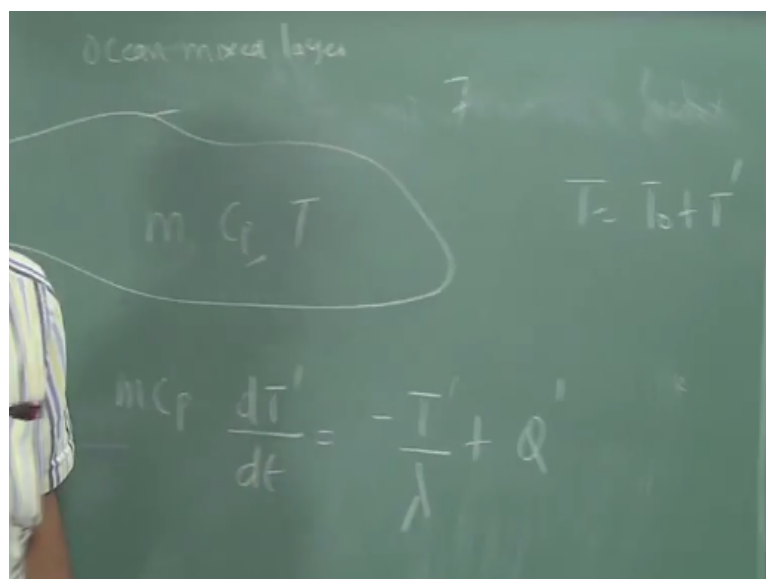 ocean mixed layer
m Cp T
T = T₀ + T'
mCp dT'/dt = - T'/λ + Q'